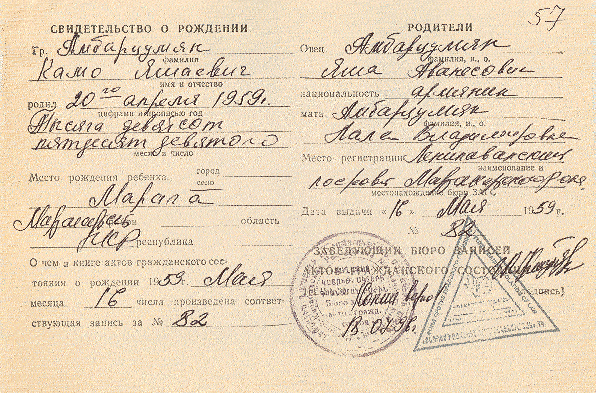 57
СВИДЕТЕЛЬСТВО О РОЖДЕНИИ
Гр. Амбарцумян
фамилия
Камо Яшаевич
имя и отчество
родил 20го апреля 1959г.
цифрами и прописью год
Тысяча девятсот
пятдесят девятого
месяц и число
Место рождения ребенка город
село
Марага
область
республика
О чем в книге актов гражданского сос-
тояния о рождении 1959. Мая
месяца 16 числа произведена соответ-
ствующая запись за № 82
РОДИТЕЛИ
Отец Амбарцумян
фамилия, и., о.
Яша Аванесович
национальность армянин
мать Амбарцумян
фамилия, и., о.
Лала Владимировна
Место регистрации Ленинаванский
наименование и
местонахождение бюро ЗАГС
Дата выдачи «16» Мая 1959г.
№ 82
ЗАВЕДУЮЩИЙ БЮРО ЗАПИСЕЙ
АКТОВ ГРАЖДАНСКОГО СОСТОЯНИЯ
Копия верна